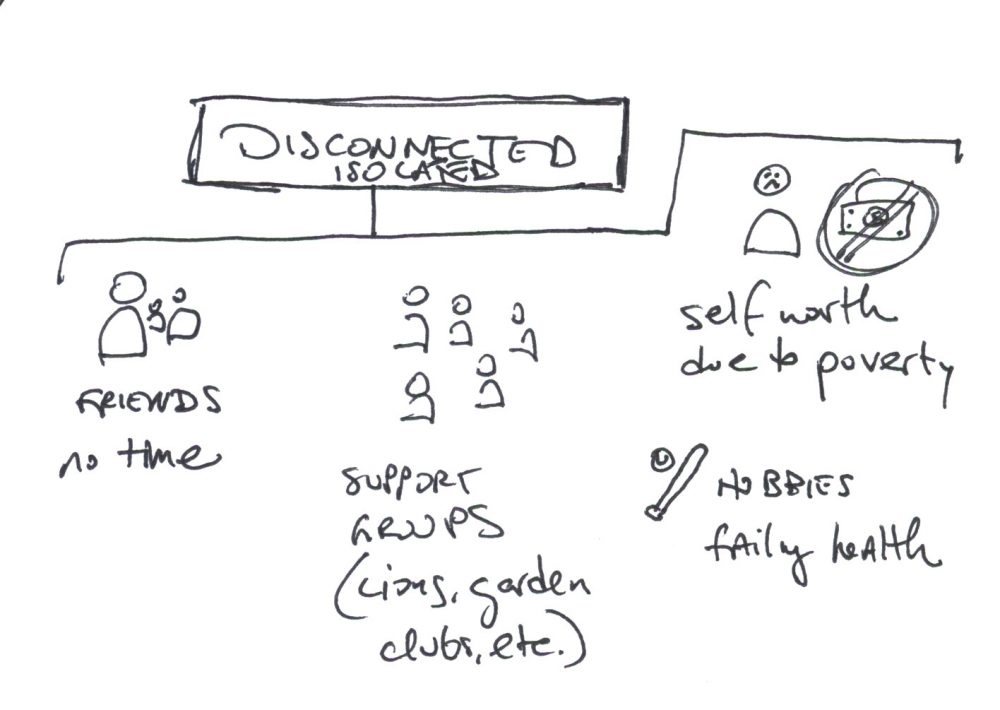 DISCONNECTED
ISOLATED
FRIENDS
no time
SUPPORT
GROUPS
(Lions, garden
clubs, etc.)
self worth
due to poverty
HOBBIES
failing health